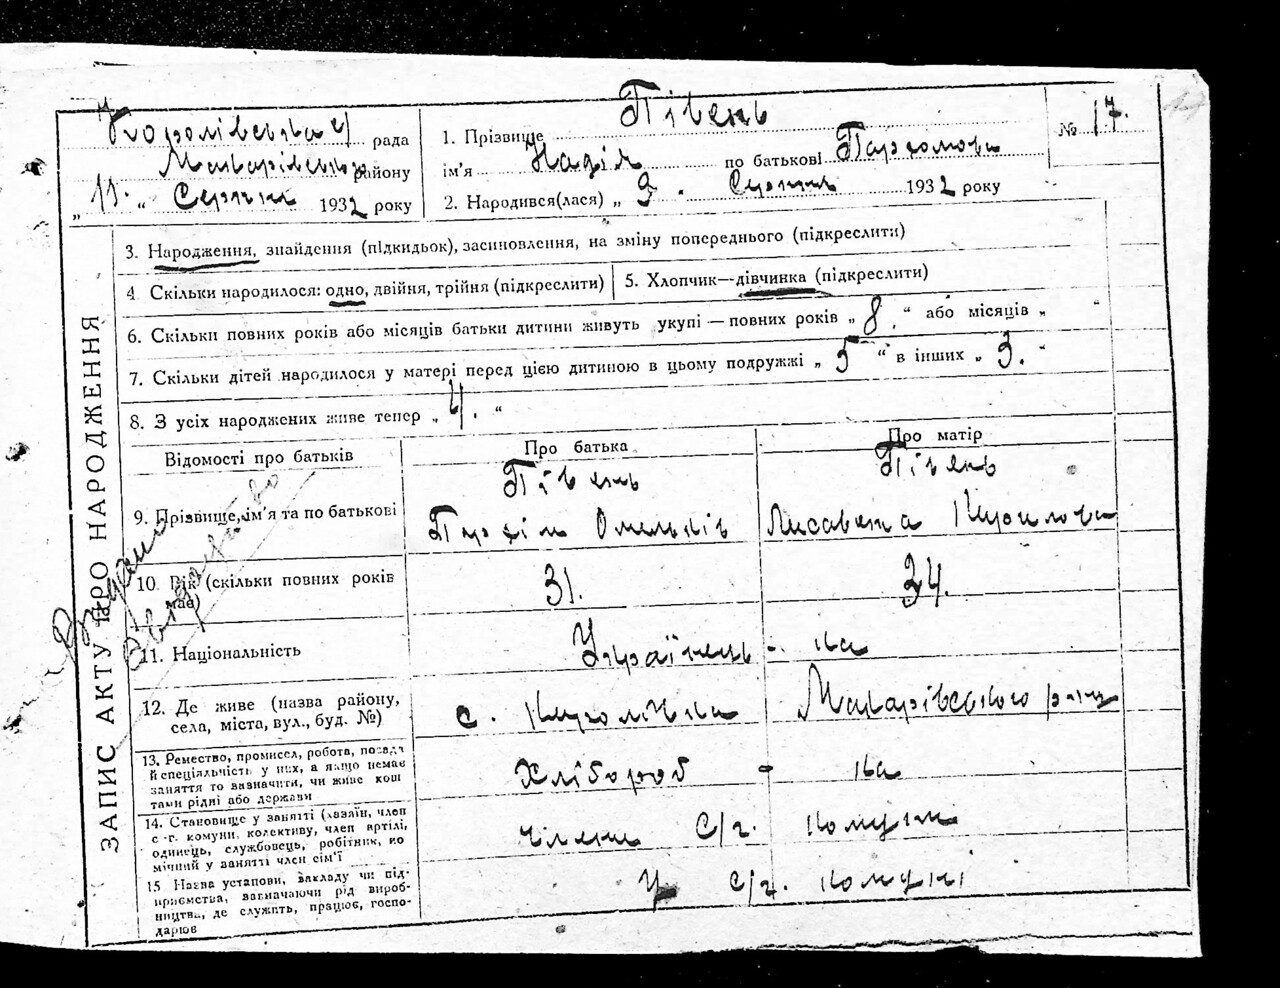 Королівська рада
Макарівськ. району
„ 11. “ Серпня 1932 року
1. Прізвище Півень
ім'я Надія по батькові Пархомова
2. Народився(лася) „ 9 “ Серпня 1932 року
№ 17.
17
ЗАПИС АКТУ ПРО НАРОДЖЕННЯ
Видано
свідоцтво
3. Народження, знайдення (підкидьок), засиновлення, на зміну попереднього (підкреслити)
4. Скільки народилося: одно, двійня, трійня (підкреслити)
5. Хлопчик—дівчинка (підкреслити)
6. Скільки повних років або місяців батьки дитини живуть укупі — повних років „ 8. “ або місяців „ “
7. Скільки дітей народилося у матері перед цією дитиною в цьому подружжі „ 5 “ в інших „ 3. “
8. З усіх народжених живе тепер „ 4. “
Відомості про батьків
Про батька
Про матір
9. Прізвище, ім'я та по батькові
Півень
Пархім Омельків
Півень
Лисавета Кирилова
10. Вік (скільки повних років має)
31.
34.
11. Національність
Українець - ка
12. Де живе (назва району,
села, міста, вул., буд. №)
с. Королівка Макарівського рай
13. Ремество, промисел, робота, посада
й спеціяльність у них, а якщо немає
заняття то зазначити, чи живе кош
тами рідні або держави
Хлібороб - ка
14. Становище у занятті (хазяїн, член
с.-г. комуни, колективу, член артілі,
одинець, службовець, робітник, по
мічний у занятті член сім'ї
члени С/г. комуни
15 Назва установи, закладу чи під-
приємства, зазначаючи рід вироб-
ництва, де служить, працює, госпо-
дарює
У с/г. комуні